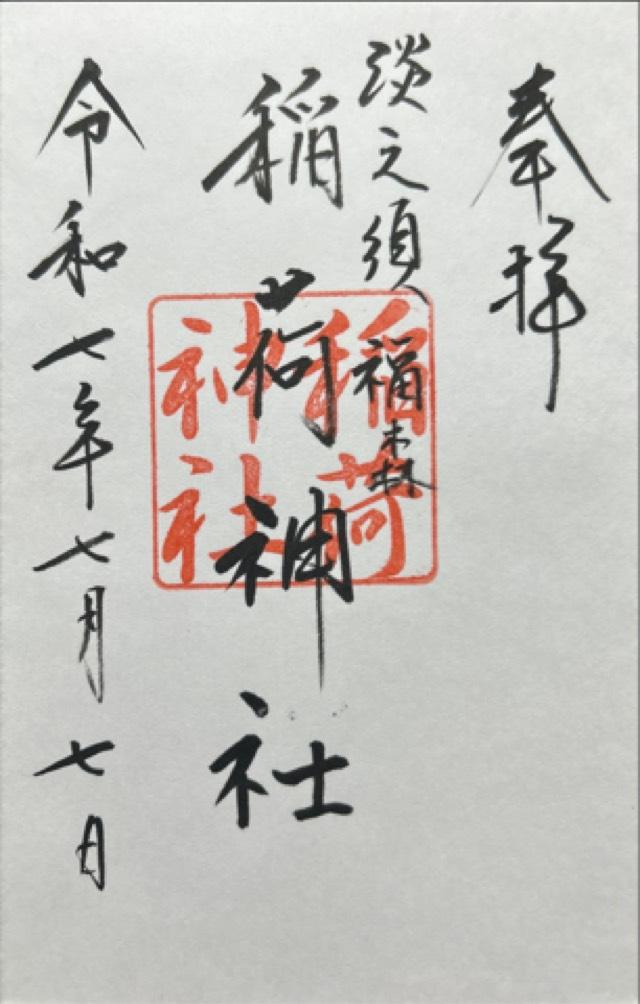 奉拝
淡之須 福森
稲荷神社
令和七年七月七日
稲荷
神社